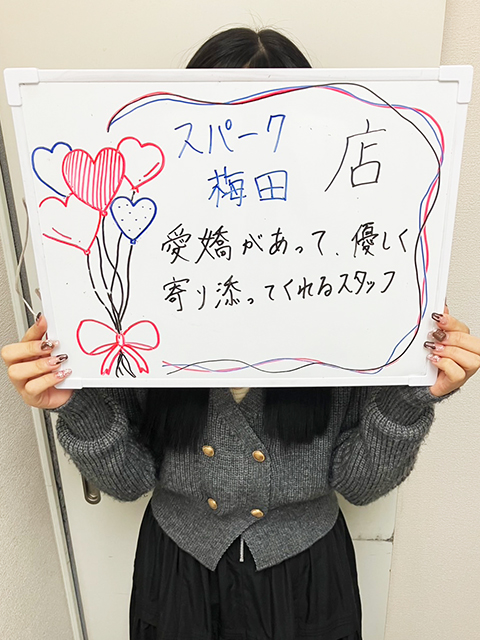 スパーク
梅田 店
愛嬌があって、優しく
寄り添ってくれるスタッフ